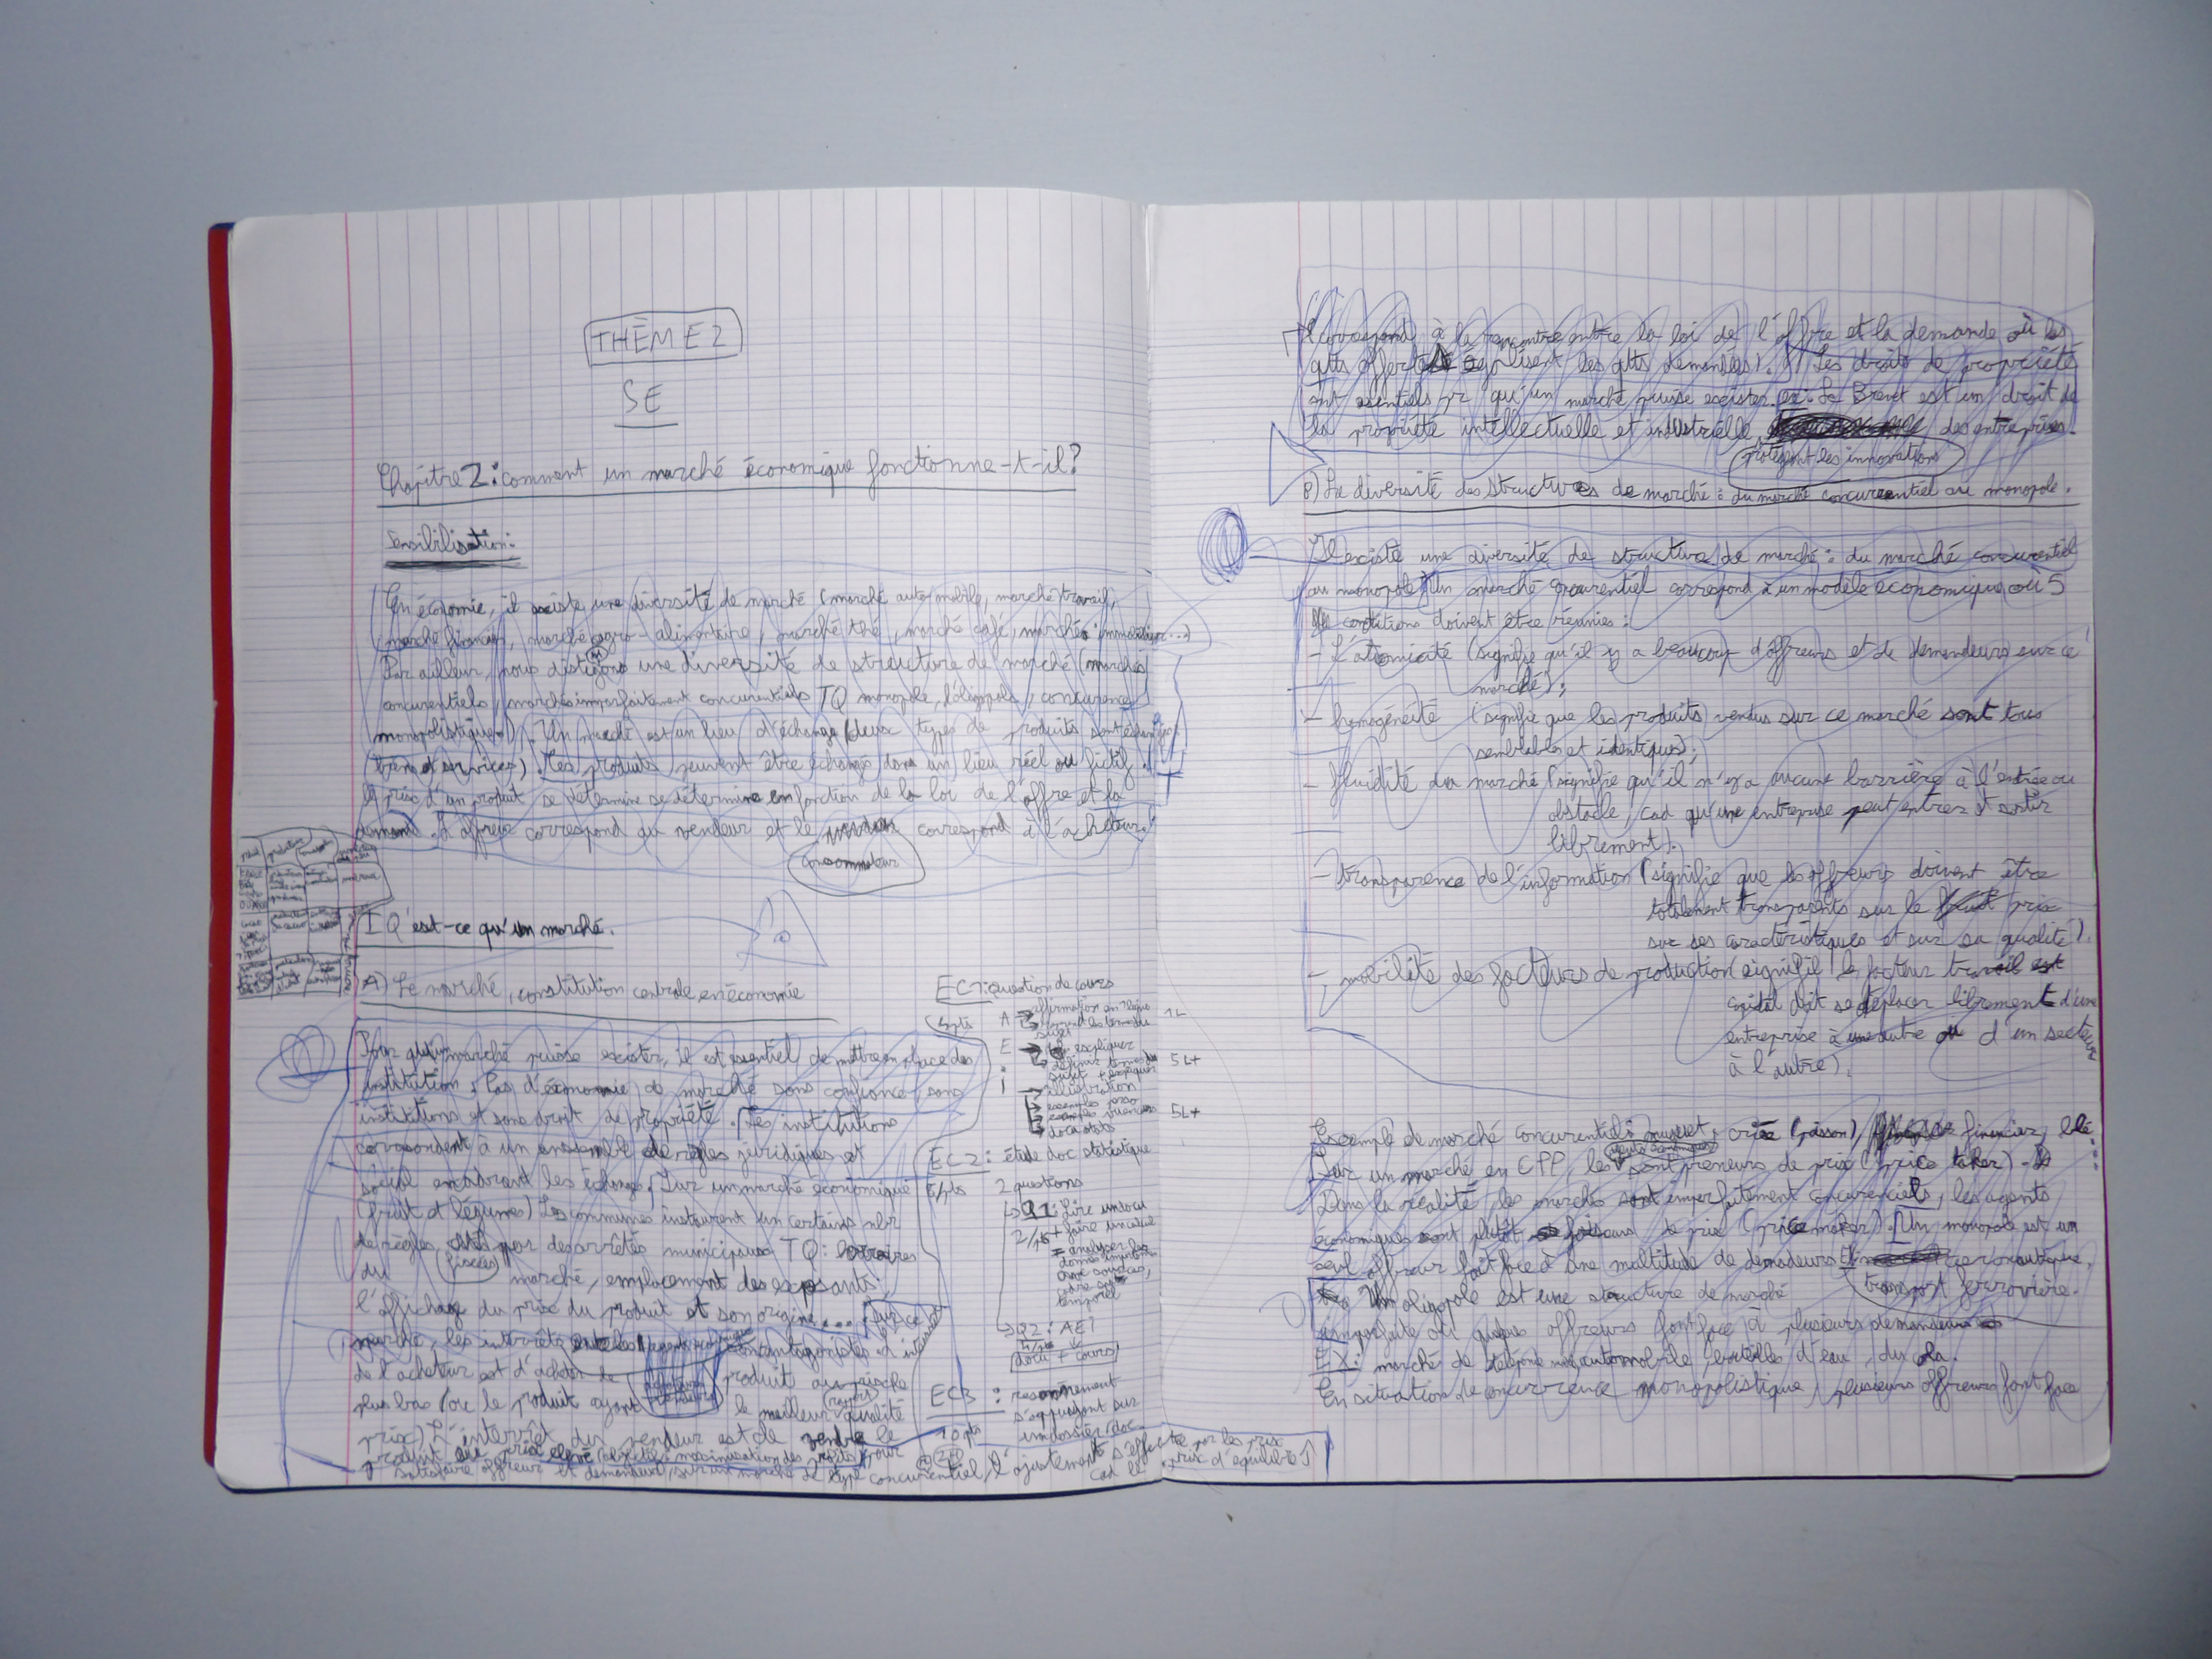 THÈME 2
SE
Chapitre 2: comment un marché économique fonctionne-t-il?
Sensibilisation:
En économie, il existe une diversité de marché (marché automobile, marché travail,
marché financier, marché agro-alimentaire, marché thé, marché café, marché immobilier...)
Par ailleur, nous distigons une diversité de structure de marché (marchés
concurentiels, marchés imparfaitement concurentiels TQ monopole, l'oligopole, concurence
monopolistique). Un marché est un lieu d'échange (deux types de produits sont échangés
biens et services). Les produits peuvent être échangés dans un lieu réel ou fictif.
le prix d'un produit se détermine se détermine en fonction de la loi de l'offre et la
demande. L'offreur correspond au vendeur et le correspond à l'acheteur.
consommateur
I Q'est-ce qu'un marché.
A) Le marché, constitution centrale en économie
Pour qu'un marché puisse exister, il est essentiel de mettre en place des
institution. Pas d'économie de marché sans confiance, sans
institutions et sans droit de propriété. Les institutions
correspondent à un ensemble de règles juridiques et
social encadrant les échanges. Sur un marché économique
(fruit et légumes) Les communes instaurent un certains nbr
de règles par des arrêtés municipaux TQ: horaires
du marché, emplacement des exposants,
fiscales
l'affichage du prix du produit et son origine... Sur ce
marché, les interrêts antagonistes
de l'acheteur est d'acheter le produit au prix le
plus bas (ou le produit ayant le meilleur qualité
prix) L'interrêt du vendeur est de vendre le
produit à un prix élevé (objectif: maximisation des profits) pour
satisfaire offreur et demandeur, sur un marché de type concurentiel, l'ajustement s'effectue par les prix
cad le prix d'équilibre
EC1: question de cours
4pts
A → affirmation en 1 ligne 1L
E → expliquer
définir termes du
sujet + expliquer 5L+
i → illustration
exemples perso
exemples 5L+
docu stats
EC2: étude doc statistique
6/pts 2 questions
Q1: lire
2/pts + faire un calcul
= analyser les
temporel
Q2: AEI
docu + cours
EC3: raisonnement
s'appuyant sur
un dossier doc
10 pts
Il correspond à la rencontre entre la loi de l'offre et la demande où les
qtts offertes égalisent les qtts demandées). Les droits de propriété
sont esentiels pr qu'un marché puisse exister. ex: Le Brevet est un droit de
la propriété intellectuelle et industrielle des entreprises.
protégeant les innovations
B) La diversité des structures de marché: du marché concurrentiel au monopole.
Il existe une diversité de structure de marché: du marché concurentiel
au monopole. Un marché concurentiel correspond à un modèle économique où 5
conditions doivent etre réunies:
- L'atomicité (signifie qu'il y a beaucoup d'offreurs et de demandeurs sur ce
marché);
- homogénéité (signifie que les produits vendus sur ce marché sont tous
semblables et identiques);
- fluidité du marché (signifie qu'il n'y a aucune barrière à l'entrée ou
obstacle, cad qu'une entreprise peut entrer et sortir
librement).
- transparence de l'information (signifie que les offreurs doivent être
totalement transparents sur le prix
sur ses caractéristiques et sur sa qualité).
- mobilité des facteurs de production (signifie le facteur travail et
capital doit se déplacer librement d'une
entreprise à une autre ou d'un secteur
à l'autre).
Exemple de marché concurentiels: criée (poisson), financier, blé...
Sur un marché en CPP les sont preneurs de prix (price taker).
agents économiques
Dans la réalité, les marchés sont imparfaitement concurenciels, les agents
économiques sont plutôt faiseurs de prix (price maker). Un monopole est un
seul offreur fait face à une multitude de demadeurs aéronautique,
transport ferrovière.
Un oligopole est une structure de marché
imparfaite où quelques offreurs font face à plusieurs demandeurs
EX: marché de téléphonie, automobile, bouteilles d'eau, du cola.
En situation de concurrence monopolistique, plusieurs offreurs font face